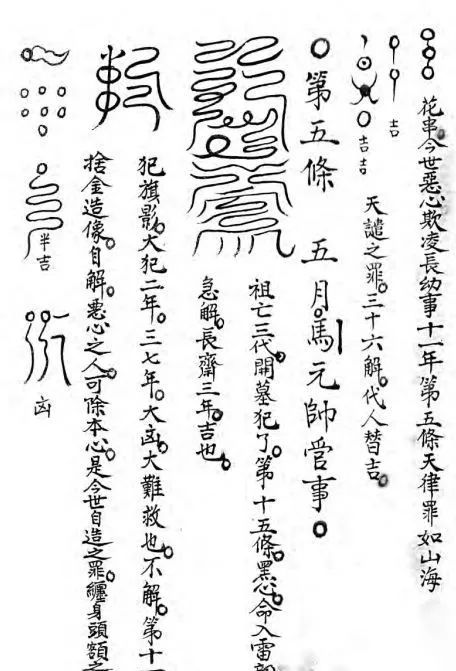 花串今世惡心欺凌長幼事十一年第五條天律罪如山海
吉
吉吉
天譴之罪三十六解代人替吉
第五條 五月馬元帥管事
祖亡三代開墓犯了第十五條黑心命入雷
急解長齋三年吉也
犯旗影大犯二年三七年大凶大難救也不解第十一
捨金造像自解惡心之人可除本心是今世自造之罪纏身頭額
半吉
凶